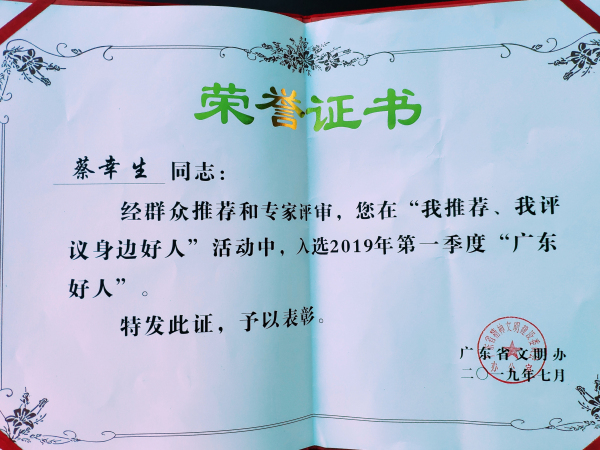 荣誉证书
蔡幸生 同志：
经群众推荐和专家评审，您在“我推荐、我评
议身边好人”活动中，入选2019年第一季度“广东
好人”。
特发此证，予以表彰。
广东省文明办
二〇一九年七月